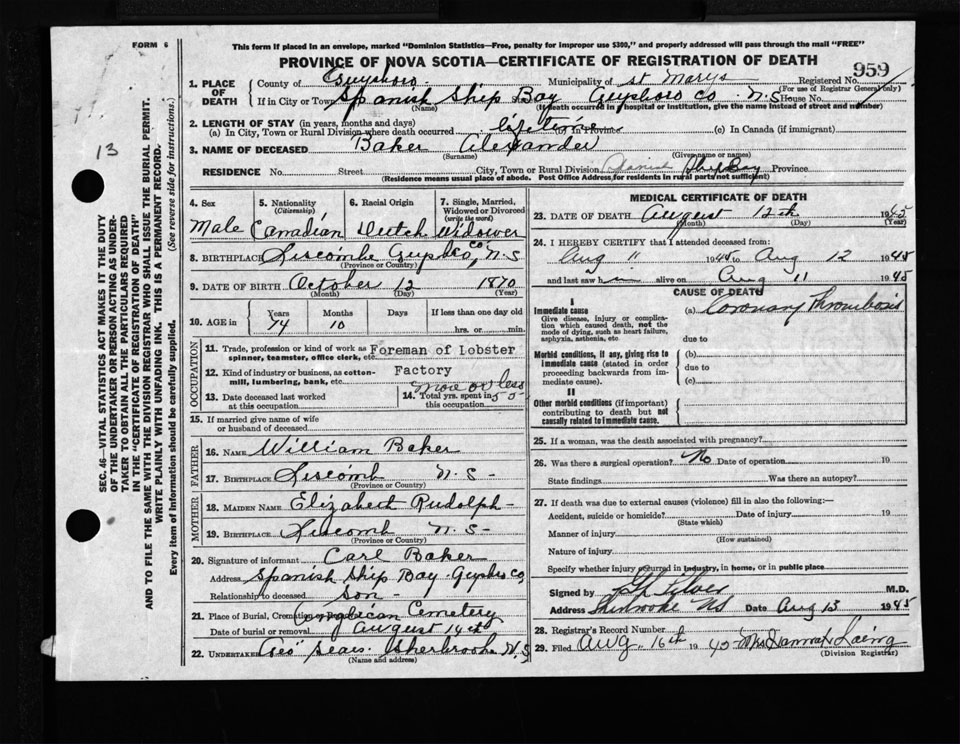 FORM 6
This form if placed in an envelope, marked "Dominion Statistics—Free, penalty for improper use $300," and properly addressed will pass through the mail "FREE"
PROVINCE OF NOVA SCOTIA—CERTIFICATE OF REGISTRATION OF DEATH
959
1. PLACE OF DEATH
County of Guysboro. Municipality of St Marys Registered No.
(For use of Registrar General only)
If in City or Town Spanish Ship Bay Guysboro Co N.S House No.
(Name) (If death occurred in a hospital or institution, give the name instead of street and number)
2. LENGTH OF STAY (in years, months and days)
(a) In City, Town or Rural Division where death occurred lifetime (b) In Province (c) In Canada (if immigrant)
3. NAME OF DECEASED Baker Alexander
(Surname) (Given name or names)
RESIDENCE No. Street City, Town or Rural Division Ship Bay Province
(Residence means usual place of abode. Post Office Address, for residents in rural parts not sufficient)
4. Sex Male
5. Nationality (Citizenship) Canadian
6. Racial Origin Dutch
7. Single, Married, Widowed or Divorced (write the word) Widower
8. BIRTHPLACE Liscombe Guysboro Co, N.S
(Province or Country)
9. DATE OF BIRTH October 12 1870
(Month) (Day) (Year)
10. AGE in Years Months Days If less than one day old
74 10 hrs. or min.
OCCUPATION
11. Trade, profession or kind of work as spinner, teamster, office clerk, etc. Foreman of Lobster
12. Kind of industry or business, as cotton-mill, lumbering, bank, etc. Factory
13. Date deceased last worked at this occupation
14. Total yrs. spent in this occupation more or less 50
15. If married give name of wife or husband of deceased
FATHER
16. NAME William Baker
17. BIRTHPLACE Liscomb N.S-
(Province or Country)
MOTHER
18. MAIDEN NAME Elizabeth Rudolph-
19. BIRTHPLACE Liscomb N.S-
(Province or Country)
20. Signature of informant Carl Baker
Address Spanish Ship Bay Guysboro Co,
Relationship to deceased son-
21. Place of Burial, Cremation or Removal Anglican Cemetery
Date of burial or removal August 14th
22. UNDERTAKER Geo Sears Sherbrooke N.S
(Name and address)
MEDICAL CERTIFICATE OF DEATH
23. DATE OF DEATH August 12th 1945
(Month) (Day) (Year)
24. I HEREBY CERTIFY that I attended deceased from:
Aug 11 1945 to Aug 12 1945
and last saw h im alive on Aug 11 1945
CAUSE OF DEATH
I
Immediate cause
Give disease, injury or complication which caused death, not the mode of dying, such as heart failure, asphyxia, asthenia, etc.
(a) Coronary Thrombosis
due to
Morbid conditions, if any, giving rise to immediate cause (stated in order proceeding backwards from immediate cause).
(b)
due to
(c)
II
Other morbid conditions (if important) contributing to death but not causally related to immediate cause.
25. If a woman, was the death associated with pregnancy?
26. Was there a surgical operation? No Date of operation 19
State findings Was there an autopsy?
27. If death was due to external causes (violence) fill in also the following:—
Accident, suicide or homicide? Date of injury 19
(State which)
Manner of injury
(How sustained)
Nature of injury
Specify whether injury occurred in industry, in home, or in public place
Signed by M.D.
Address Sherbrooke NS Date Aug 13 1945
28. Registrar's Record Number
29. Filed Aug 16th 19 45 Mrs Hannah Laing
(Division Registrar)
13
SEC. 46—VITAL STATISTICS ACT MAKES IT THE DUTY OF THE UNDERTAKER OR PERSON ACTING AS UNDERTAKER TO OBTAIN ALL THE PARTICULARS REQUIRED IN THE "CERTIFICATE OF REGISTRATION OF DEATH"
AND TO FILE THE SAME WITH THE DIVISION REGISTRAR WHO SHALL ISSUE THE BURIAL PERMIT.
WRITE PLAINLY WITH UNFADING INK. THIS IS A PERMANENT RECORD.
Every item of information should be carefully supplied. (See reverse side for instructions.)